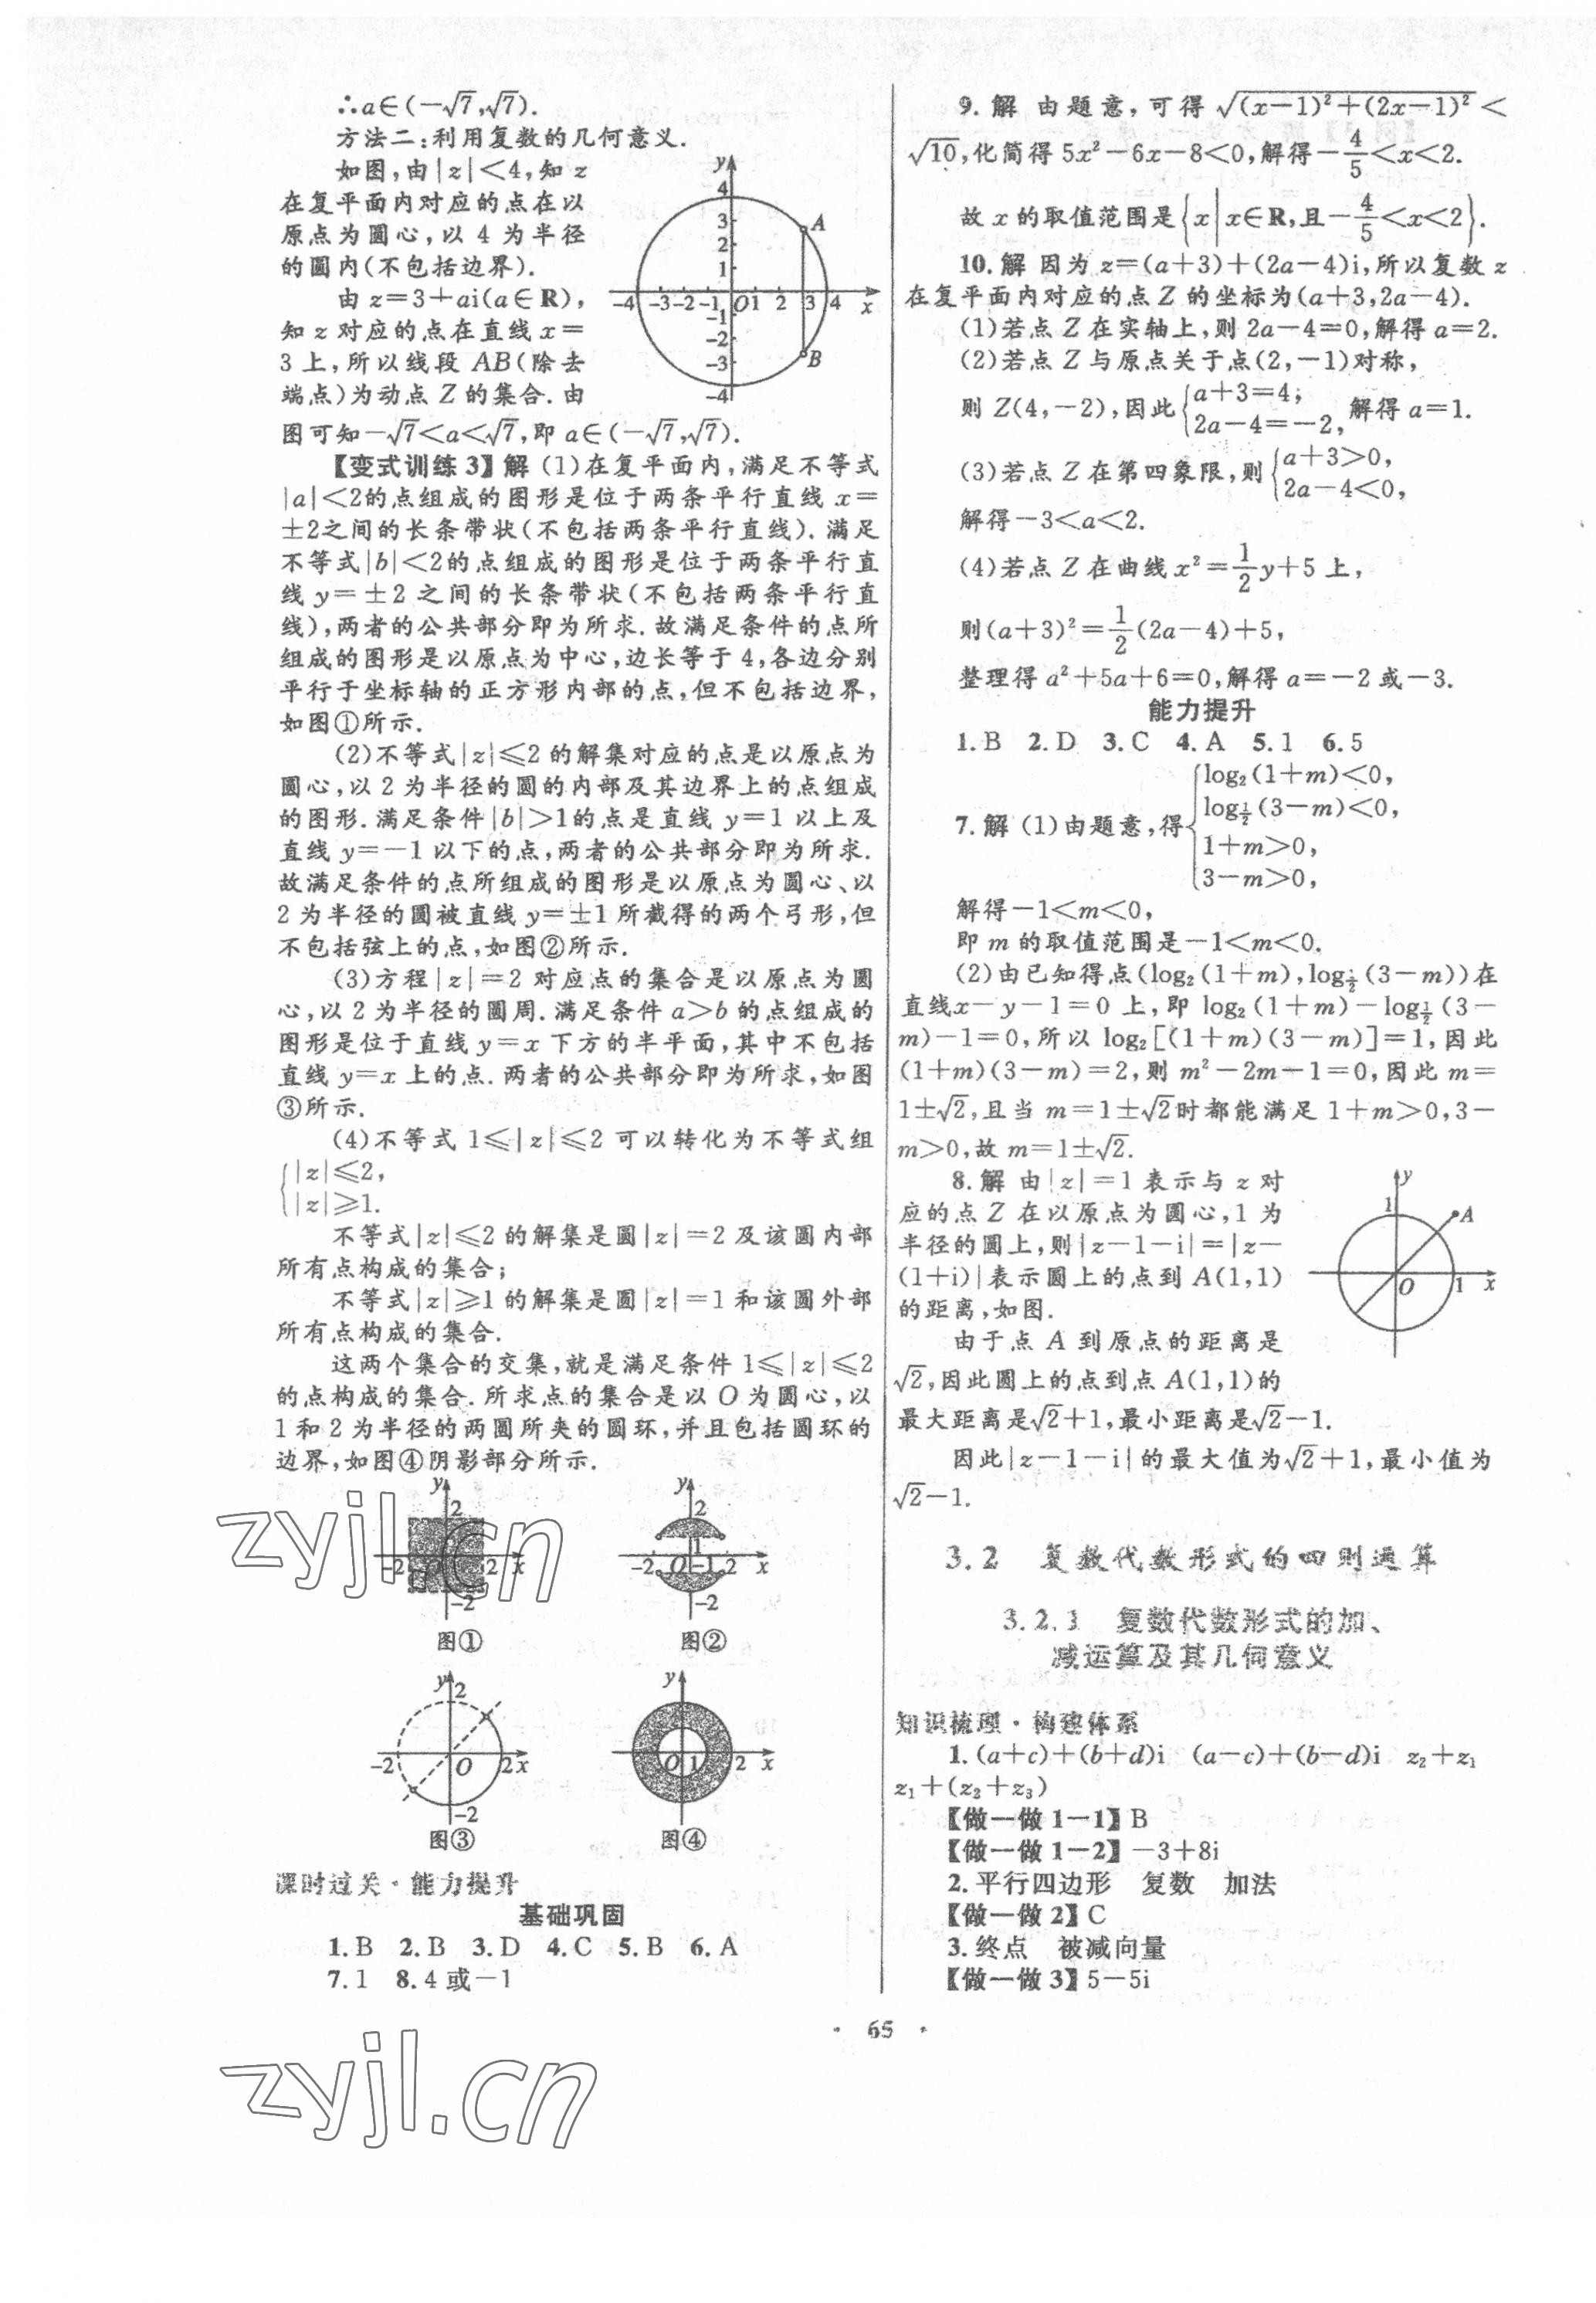 ∴a∈(−√7,√7).
方法二:利用复数的几何意义.
如图,由|z|<4,知 z
在复平面内对应的点在以
原点为圆心,以 4 为半径
的圆内(不包括边界).
由 z=3+ai(a∈R),
知 z 对应的点在直线 x=
3 上,所以线段 AB(除去
端点)为动点 Z 的集合.由
图可知−√7<a<√7,即 a∈(−√7,√7).
y
4
3
2
1
A
−4 −3−2−1 O 1 2 3 4 x
−1
−2
−3
−4
B
【变式训练 3】解 (1)在复平面内,满足不等式
|a|<2的点组成的图形是位于两条平行直线 x=
±2之间的长条带状(不包括两条平行直线).满足
不等式|b|<2的点组成的图形是位于两条平行直
线 y=±2 之间的长条带状(不包括两条平行直
线),两者的公共部分即为所求.故满足条件的点所
组成的图形是以原点为中心,边长等于 4,各边分别
平行于坐标轴的正方形内部的点,但不包括边界,
如图①所示.
(2)不等式|z|≤2 的解集对应的点是以原点为
圆心,以 2 为半径的圆的内部及其边界上的点组成
的图形.满足条件|b|>1的点是直线 y=1 以上及
直线 y=−1 以下的点,两者的公共部分即为所求.
故满足条件的点所组成的图形是以原点为圆心、以
2 为半径的圆被直线 y=±1 所截得的两个弓形,但
不包括弦上的点,如图②所示.
(3)方程|z|=2 对应点的集合是以原点为圆
心,以 2 为半径的圆周.满足条件 a>b 的点组成的
图形是位于直线 y=x 下方的半平面,其中不包括
直线 y=x 上的点.两者的公共部分即为所求,如图
③所示.
(4)不等式 1≤|z|≤2 可以转化为不等式组
{|z|≤2,
|z|≥1.
不等式|z|≤2 的解集是圆|z|=2 及该圆内部
所有点构成的集合;
不等式|z|≥1 的解集是圆|z|=1 和该圆外部
所有点构成的集合.
这两个集合的交集,就是满足条件 1≤|z|≤2
的点构成的集合.所求点的集合是以 O 为圆心,以
1 和 2 为半径的两圆所夹的圆环,并且包括圆环的
边界,如图④阴影部分所示.
y
2
−2 2 x
−2
图①
y
2
1
−2 O −1 2 x
−2
图②
y
2
−2 O 2 x
−2
图③
y
O 1 2 x
图④
zyjl.cn
课时过关·能力提升
基础巩固
1.B 2.B 3.D 4.C 5.B 6.A
7.1 8.4 或−1
9.解 由题意,可得 √((x−1)²+(2x−1)²)<
√10,化简得 5x²−6x−8<0,解得−4/5<x<2.
故 x 的取值范围是{x|x∈R,且−4/5<x<2}.
10.解 因为 z=(a+3)+(2a−4)i,所以复数 z
在复平面内对应的点 Z 的坐标为(a+3,2a−4).
(1)若点 Z 在实轴上,则 2a−4=0,解得 a=2.
(2)若点 Z 与原点关于点(2,−1)对称,
则 Z(4,−2),因此{a+3=4; 2a−4=−2, 解得 a=1.
(3)若点 Z 在第四象限,则{a+3>0, 2a−4<0,
解得−3<a<2.
(4)若点 Z 在曲线 x²=1/2y+5 上,
则(a+3)²=1/2(2a−4)+5,
整理得 a²+5a+6=0,解得 a=−2 或−3.
能力提升
1.B 2.D 3.C 4.A 5.1 6.5
7.解 (1)由题意,得{log₂(1+m)<0,
log_{1/2}(3−m)<0,
1+m>0,
3−m>0,
解得−1<m<0,
即 m 的取值范围是−1<m<0.
(2)由已知得点(log₂(1+m),log_{1/2}(3−m))在
直线x−y−1=0 上,即 log₂(1+m)−log_{1/2}(3−
m)−1=0,所以 log₂[(1+m)(3−m)]=1,因此
(1+m)(3−m)=2,则 m²−2m−1=0,因此 m=
1±√2,且当 m=1±√2时都能满足 1+m>0,3−
m>0,故 m=1±√2.
8.解 由|z|=1 表示与 z 对
应的点 Z 在以原点为圆心,1 为
半径的圆上,则|z−1−i|=|z−
(1+i)|表示圆上的点到 A(1,1)
的距离,如图.
由于点 A 到原点的距离是
√2,因此圆上的点到点 A(1,1)的
最大距离是√2+1,最小距离是√2−1.
y
1
A
O 1 x
因此|z−1−i|的最大值为√2+1,最小值为
√2−1.
3.2 复数代数形式的四则运算
3.2.1 复数代数形式的加、
减运算及其几何意义
知识梳理·构建体系
1.(a+c)+(b+d)i (a−c)+(b−d)i z₂+z₁
z₁+(z₂+z₃)
【做一做 1−1】B
【做一做 1−2】−3+8i
2.平行四边形 复数 加法
【做一做 2】C
3.终点 被减向量
【做一做 3】5−5i
· 65 ·
zyjl.cn